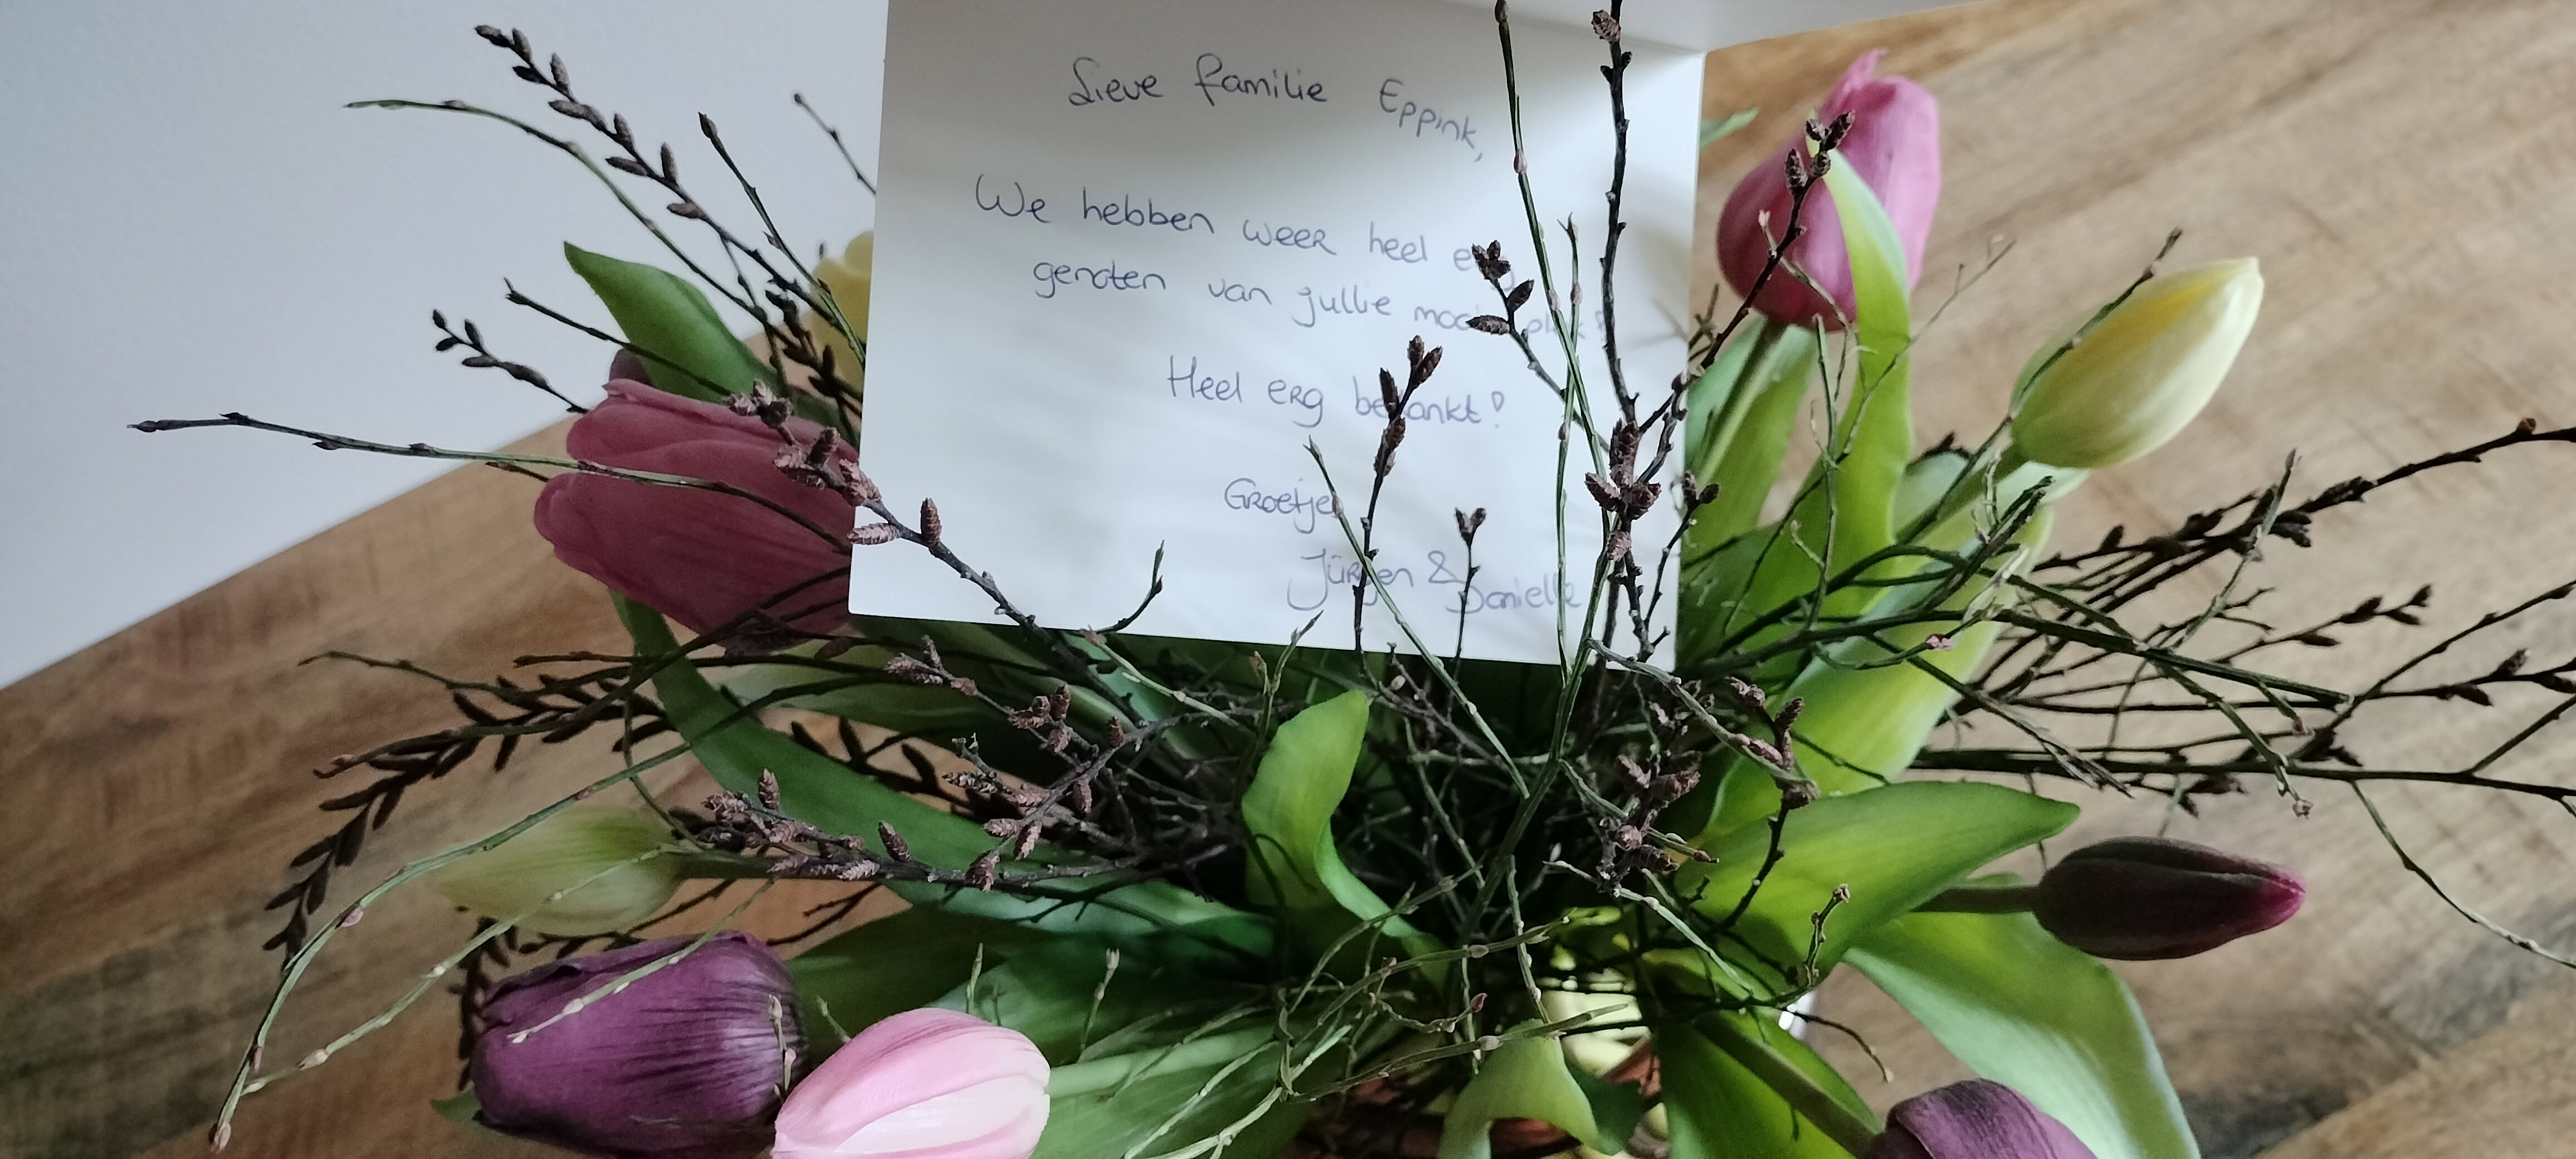 Lieve familie Eppink,
We hebben weer heel erg
genoten van jullie mooie plek!
Heel erg bedankt!
Groetjes
Jürgen &
Danielle